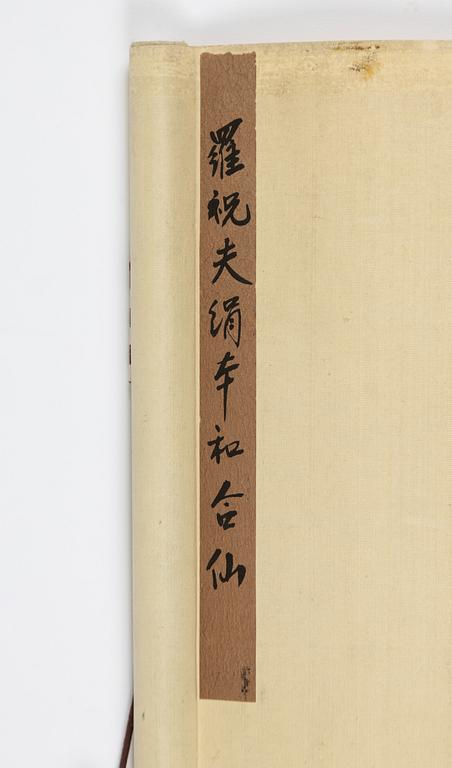 羅祝夫絹本和合仙